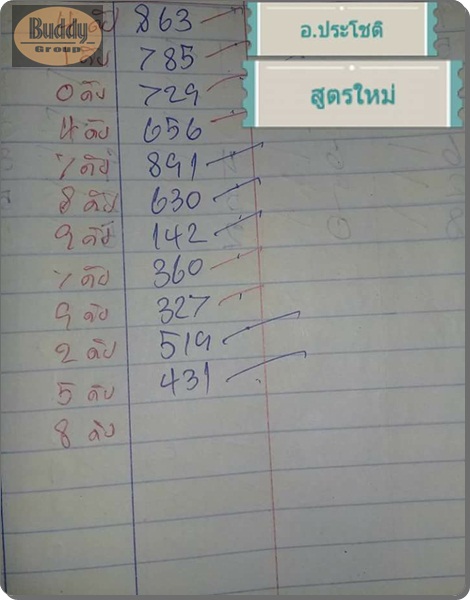 Buddy
Group
อ.ประโชติ
สูตรใหม่
ดับ 863
1 ดับ 785
0 ดับ 729
4 ดับ 656
7 ดับ 891
8 ดับ 630
9 ดับ 142
7 ดับ 360
9 ดับ 327
2 ดับ 519
5 ดับ 431
8 ดับ